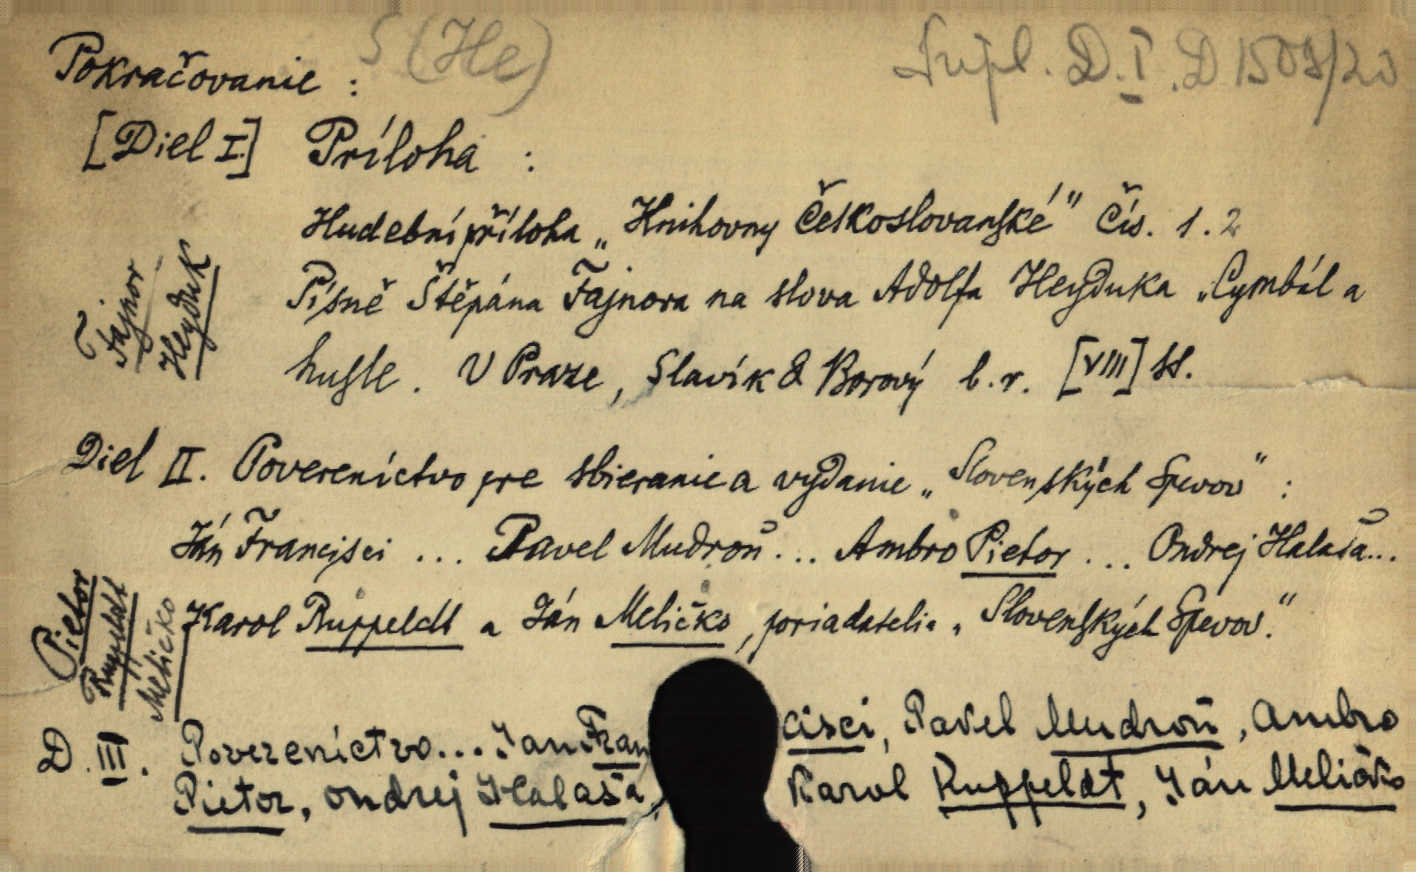 Pokračovanie : S (He) Supl. D.I. D 1509/20
[Diel I.] Príloha :
Hudební příloha „Knihovny Československé" Čís. 1. 2
Písně Štěpána Fajnora na slova Adolfa Heyduka „Cymbál a
husle. V Praze, Slavík & Borový b.r. [VIII] ss.
Fajnor
Heyduk
Diel II. Povereníctvo pre sbieranie a vydanie „Slovenských Spevov" :
Ján Francisci ... Pavel Mudroň ... Ambro Pietor ... Ondrej Halaša...
Karol Ruppeldt a Ján Meličko, poriadatelia „Slovenských Spevov."
Pietor
Ruppeldt
Meličko
D. III. Povereníctvo... Jan Francisci, Pavel Mudroň, Ambro
Pietor, Ondrej Halaša, Karol Ruppeldt, Ján Meličko